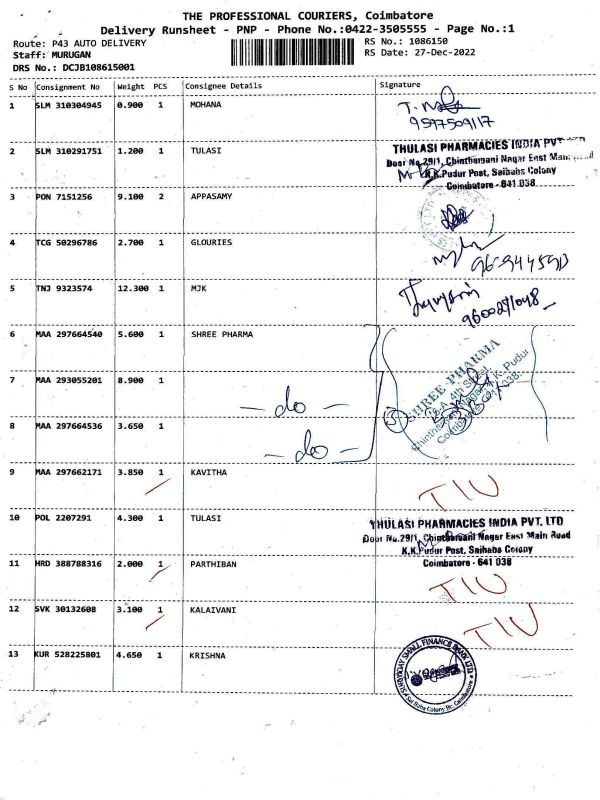 THE PROFESSIONAL COURIERS, Coimbatore
Delivery Runsheet - PNP - Phone No.:0422-3505555 - Page No.:1
Route: P43 AUTO DELIVERY
RS No.: 1086150
Staff: MURUGAN
RS Date: 27-Dec-2022
DRS No.: DCJB108615001
S No Consignment No Weight PCS Consignee Details Signature
1 SLM 310304945 0.900 1 MOHANA
9597509117
2 SLM 310291751 1.200 1 TULASI
THULASI PHARMACIES INDIA PVT
Door No.29/1, Chinthamani Nagar East Main
K.K.Pudur Post, Saibaba Colony
Coimbatore - 641 038
3 PON 7151256 9.100 2 APPASAMY
4 TCG 50296786 2.700 1 GLOURIES
5 TNJ 9323574 12.300 1 MJK
6 MAA 297664540 5.600 1 SHREE PHARMA
SHREE PHARMA
7 MAA 293055201 8.900 1
- do -
8 MAA 297664536 3.650 1
- do -
9 MAA 297662171 3.850 1 KAVITHA
10 POL 2207291 4.300 1 TULASI
THULASI PHARMACIES INDIA PVT. LTD
Door No.29/1, Chinthamani Nagar East Main Road
K.K.Pudur Post, Saibaba Colony
Coimbatore - 641 038
11 HRD 388788316 2.000 1 PARTHIBAN
12 SVK 30132608 3.100 1 KALAIVANI
13 KUR 528225801 4.650 1 KRISHNA